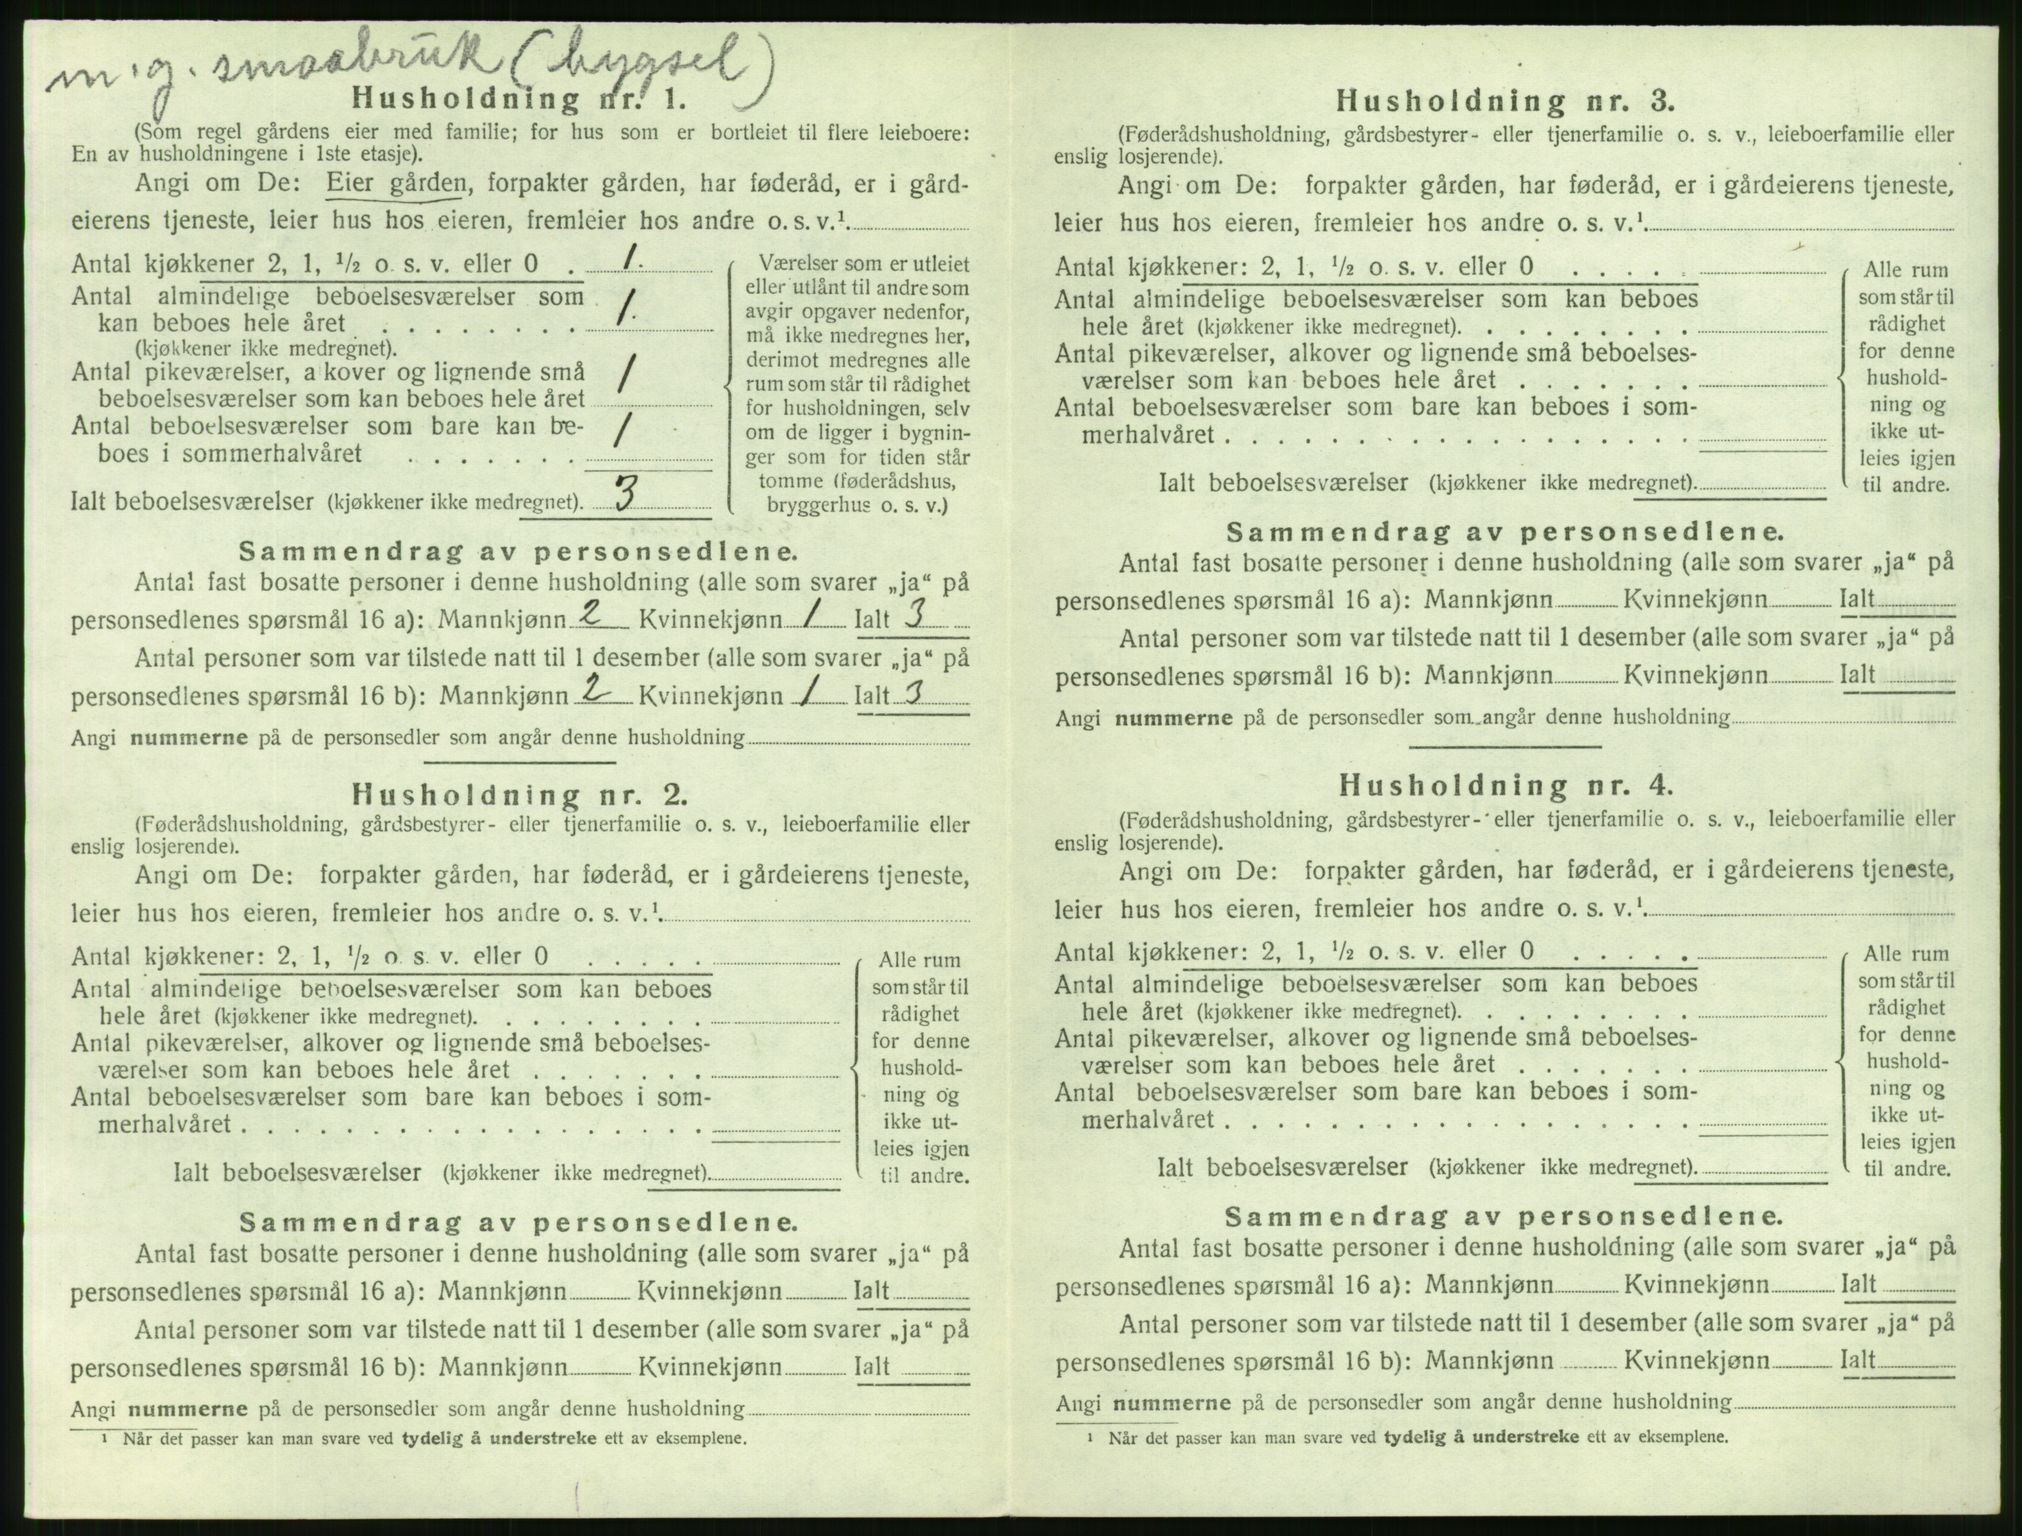 m.g. smaabruk (bygsel)
Husholdning nr. 1.
(Som regel gårdens eier med familie; for hus som er bortleiet til flere leieboere:
En av husholdningene i 1ste etasje).
Angi om De: Eier gården, forpakter gården, har føderåd, er i gård-
eierens tjeneste, leier hus hos eieren, fremleier hos andre o. s. v.¹.
Antal kjøkkener 2, 1, ½ o. s. v. eller 0 . 1.
Antal almindelige beboelsesværelser som
kan beboes hele året . . . . . . . . 1.
(kjøkkener ikke medregnet).
Antal pikeværelser, a kover og lignende små
beboelsesværelser som kan beboes hele året 1
Antal beboelsesværelser som bare kan be-
boes i sommerhalvåret . . . . . . . 1
Ialt beboelsesværelser (kjøkkener ikke medregnet). 3
Værelser som er utleiet
eller utlånt til andre som
avgir opgaver nedenfor,
må ikke medregnes her,
derimot medregnes alle
rum som står til rådighet
for husholdningen, selv
om de ligger i bygnin-
ger som for tiden står
tomme (føderådshus,
bryggerhus o. s. v.)
Sammendrag av personsedlene.
Antal fast bosatte personer i denne husholdning (alle som svarer „ja“ på
personsedlenes spørsmål 16 a): Mannkjønn 2 Kvinnekjønn 1 Ialt 3
Antal personer som var tilstede natt til 1 desember (alle som svarer „ja“ på
personsedlenes spørsmål 16 b): Mannkjønn 2 Kvinnekjønn 1 Ialt 3
Angi nummerne på de personsedler som angår denne husholdning
Husholdning nr. 2.
(Føderådshusholdning, gårdsbestyrer- eller tjenerfamilie o. s. v., leieboerfamilie eller
enslig losjerende).
Angi om De: forpakter gården, har føderåd, er i gårdeierens tjeneste,
leier hus hos eieren, fremleier hos andre o. s. v.¹.
Antal kjøkkener: 2, 1, ½ o. s. v. eller 0 . . . . .
Antal almindelige beboelsesværelser som kan beboes
hele året (kjøkkener ikke medregnet). . . . . . . . .
Antal pikeværelser, alkover og lignende små beboelses-
værelser som kan beboes hele året . . . . . . .
Antal beboelsesværelser som bare kan beboes i som-
merhalvåret . . . . . . . . . . . . . . . . . .
Ialt beboelsesværelser (kjøkkener ikke medregnet).
Alle rum
som står til
rådighet
for denne
hushold-
ning og
ikke ut-
leies igjen
til andre.
Sammendrag av personsedlene.
Antal fast bosatte personer i denne husholdning (alle som svarer „ja“ på
personsedlenes spørsmål 16 a): Mannkjønn Kvinnekjønn Ialt
Antal personer som var tilstede natt til 1 desember (alle som svarer „ja“ på
personsedlenes spørsmål 16 b): Mannkjønn Kvinnekjønn Ialt
Angi nummerne på de personsedler som angår denne husholdning
¹ Når det passer kan man svare ved tydelig å understreke ett av eksemplene.
Husholdning nr. 3.
(Føderådshusholdning, gårdsbestyrer- eller tjenerfamilie o. s. v., leieboerfamilie eller
enslig losjerende).
Angi om De: forpakter gården, har føderåd, er i gårdeierens tjeneste,
leier hus hos eieren, fremleier hos andre o. s. v.¹.
Antal kjøkkener: 2, 1, ½ o. s. v. eller 0 . . . . .
Antal almindelige beboelsesværelser som kan beboes
hele året (kjøkkener ikke medregnet). . . . . . . . .
Antal pikeværelser, alkover og lignende små beboelses-
værelser som kan beboes hele året . . . . . . .
Antal beboelsesværelser som bare kan beboes i som-
merhalvåret . . . . . . . . . . . . . . . . . .
Ialt beboelsesværelser (kjøkkener ikke medregnet).
Alle rum
som står til
rådighet
for denne
hushold-
ning og
ikke ut-
leies igjen
til andre.
Sammendrag av personsedlene.
Antal fast bosatte personer i denne husholdning (alle som svarer „ja“ på
personsedlenes spørsmål 16 a): Mannkjønn Kvinnekjønn Ialt
Antal personer som var tilstede natt til 1 desember (alle som svarer „ja“ på
personsedlenes spørsmål 16 b): Mannkjønn Kvinnekjønn Ialt
Angi nummerne på de personsedler som angår denne husholdning
Husholdning nr. 4.
(Føderådshusholdning, gårdsbestyrer- eller tjenerfamilie o. s. v., leieboerfamilie eller
enslig losjerende).
Angi om De: forpakter gården, har føderåd, er i gårdeierens tjeneste,
leier hus hos eieren, fremleier hos andre o. s. v.¹.
Antal kjøkkener: 2, 1, ½ o. s. v. eller 0 . . . . .
Antal almindelige beboelsesværelser som kan beboes
hele året (kjøkkener ikke medregnet). . . . . . . . .
Antal pikeværelser, alkover og lignende små beboelses-
værelser som kan beboes hele året . . . . . . .
Antal beboelsesværelser som bare kan beboes i som-
merhalvåret . . . . . . . . . . . . . . . . . .
Ialt beboelsesværelser (kjøkkener ikke medregnet).
Alle rum
som står til
rådighet
for denne
hushold-
ning og
ikke ut-
leies igjen
til andre.
Sammendrag av personsedlene.
Antal fast bosatte personer i denne husholdning (alle som svarer „ja“ på
personsedlenes spørsmål 16 a): Mannkjønn Kvinnekjønn Ialt
Antal personer som var tilstede natt til 1 desember (alle som svarer „ja“ på
personsedlenes spørsmål 16 b): Mannkjønn Kvinnekjønn Ialt
Angi nummerne på de personsedler som angår denne husholdning
¹ Når det passer kan man svare ved tydelig å understreke ett av eksemplene.